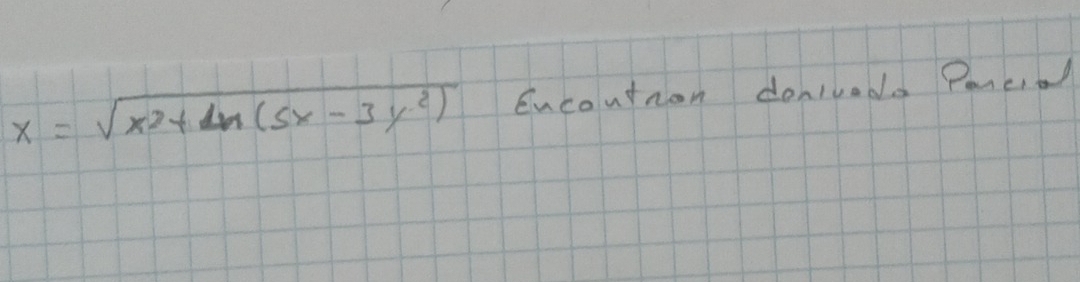 x = √x²+ Ln(5x - 3y²) Encontrar derivada Parcial